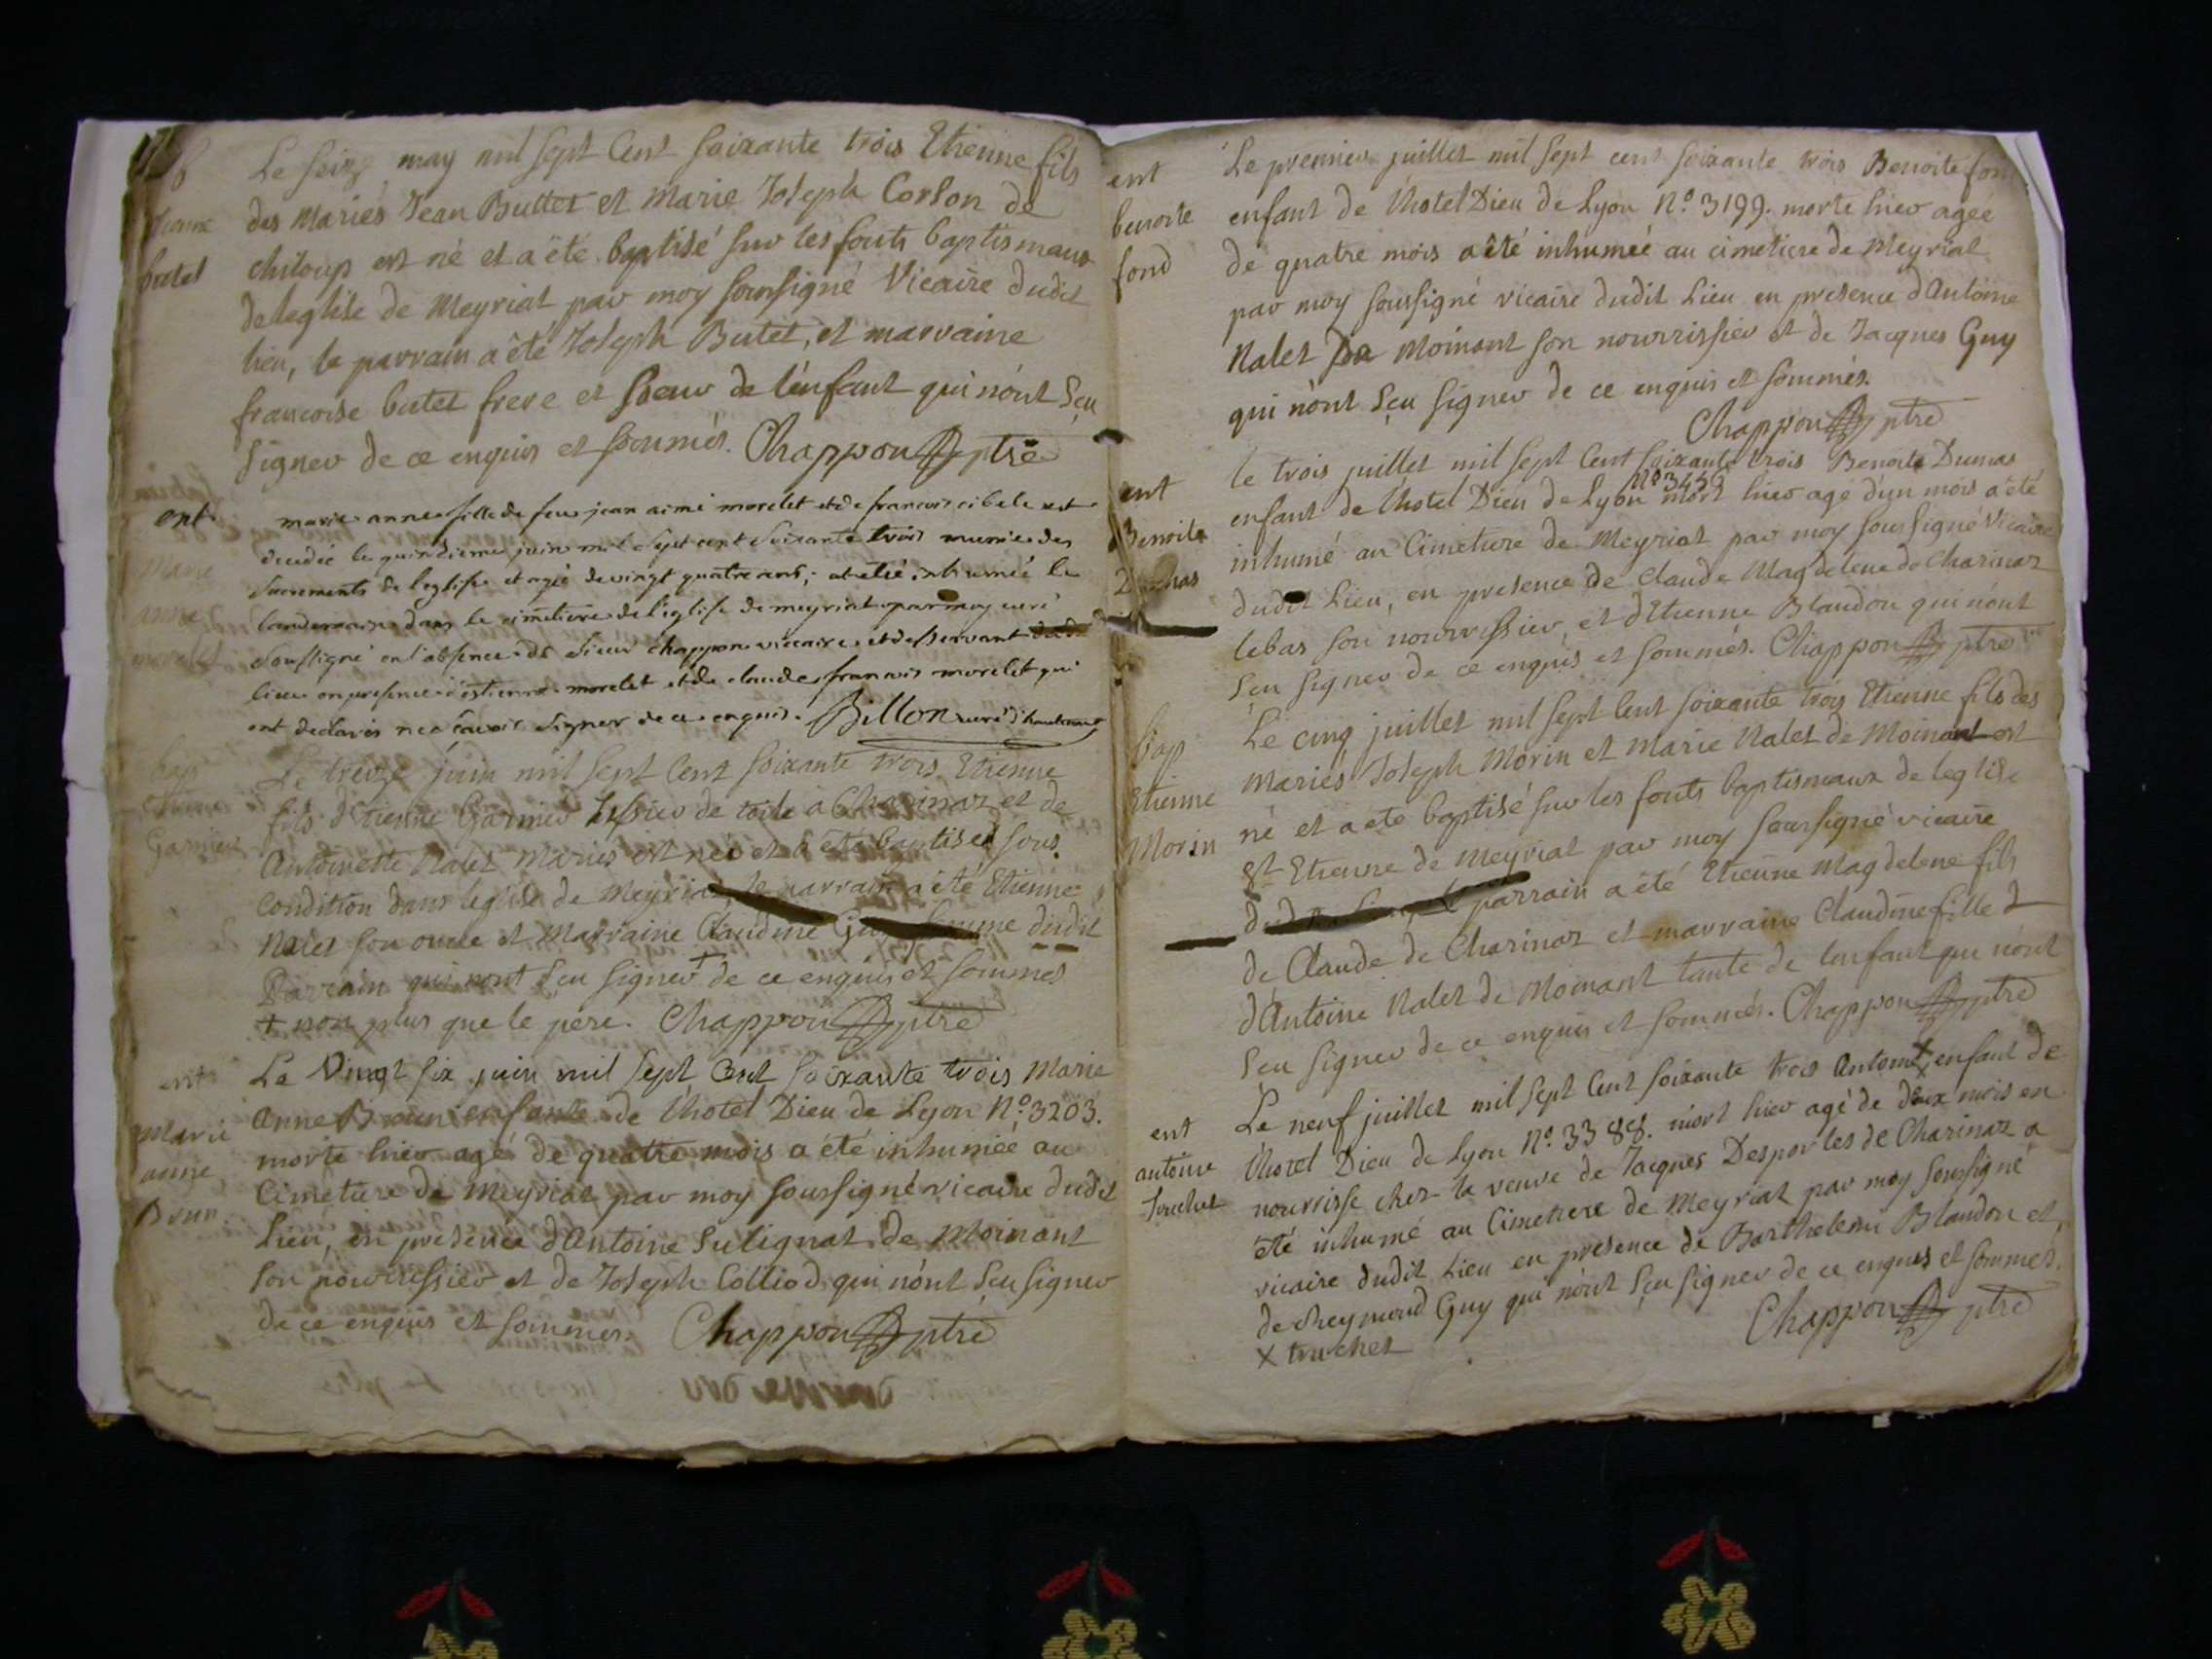 b
Etienne
butet
Le seize may mil sept Cent soixante trois Etienne fils
des Mariés Jean Buttet et Marie Joseph Corson de
chiloup est né et a été baptisé sur les fonts baptismaux
deleglise de Meyriat par moy soussigné Vicaire dudit
lieu, le parrain a été Joseph Butet, et marraine
francoise butet frere et soeur de l'enfant qui n'ont sçu
signer de ce enquis et sommés. Chappon ptre
ent
marie
anne
morelet
marie anne fille de feu jean aimé morelet et de francoise cibele est
decedée le quinzieme juin mil sept cent soixante trois munie des
sacrements de leglise et agée de vingt quatre ans; a été inhumée le
landemain dans le cimetiere de l'eglise de meyriat par moy curé
soussigné en l'absence de sieur chappon vicaire et desservant dud.
lieu en presence d'estienne morelet et de claude francois morelet qui
ont declarés ne scavoir signer de ce enquis. Billon curé d'hautecourt
bap
etienne
Garnier
Le treize juin mil sept Cent soixante trois Etienne
fils d'Etienne Garnier tessier de toile a Charinaz et de
Antoinette Nalet Mariés est né et a été baptisé sous
Condition dans leglise de Meyriat, le parrain a été Etienne
Nalet son oncle et Marraine Claudine Guy femme dudit
Parrain qui n'ont sçu signer + de ce enquis et sommés
+ non plus que le pere. Chappon ptre
ent
Marie
anne
Brun
Le Vingt six juin mil sept Cent soixante trois Marie
Anne Brun enfante de l'hotel Dieu de Lyon N.º 3203.
morte hier agé de quatre mois a été inhumée au
Cimetiere de Meyriat par moy soussigné vicaire dudit
Lieu, en presence d'Antoine Sulignat de Moinant
son nourrissier et de Joseph Colliod qui n'ont sçu signer
de ce enquis et sommés. Chappon ptre
ent
benoite
fond
Le premier juillet mil sept cent soixante trois Benoite fond
enfant de l'hotel Dieu de Lyon N.º 3199. morte hier ageé
de quatre mois a été inhumeé au cimetiere de Meyriat
par moy soussigné vicaire dudit Lieu en presence d'Antoine
Nalet de Moinant son nourrissier et de Jacques Guy
qui n'ont sçu signer de ce enquis et sommés.
Chappon ptre
ent
Benoit
Dumas
le trois juillet mil sept Cent soixante trois Benoit Dumas
Nº 3456
enfant de l'hotel Dieu de Lyon mort hier agé d'un mois a été
inhumé au Cimetiere de Meyriat par moy soussigné Vicaire
dudit Lieu, en presence de Claude Magdelene de Charinaz
lebas son nourrissier, et d'Etienne Blandon qui n'ont
sçu signer de ce enquis et sommés. Chappon ptre
bap
Etienne
Morin
Le cinq juillet mil sept Cent soixante trois Etienne fils des
Mariés Joseph Morin et Marie Nalet de Moinant est
né et a été baptisé sur les fonts baptismaux de leglise
St Etienne de Meyriat par moy soussigné vicaire
dud parrain a été Etienne Magdelene fils
de Claude de Charinaz et marraine Claudine fille
d'Antoine Nalet de Moinant tante de lenfant qui n'ont
sçu signer de ce enquis et sommés. Chappon ptre
ent
antoine
truchet
Le neuf juillet mil sept Cent soixante trois Antoine x enfant de
l'hotel Dieu de Lyon N.º 3388. mort hier agé de deux mois en
nourrisse chez la veuve de Jacques Desportes de Charinaz a
été inhumé au Cimetiere de Meyriat par moy soussigné
vicaire dudit Lieu en presence de Barthelemi Blandon et
de Reymond Guy qui n'ont sçu signer de ce enquis et sommés.
x truchet
Chappon ptre